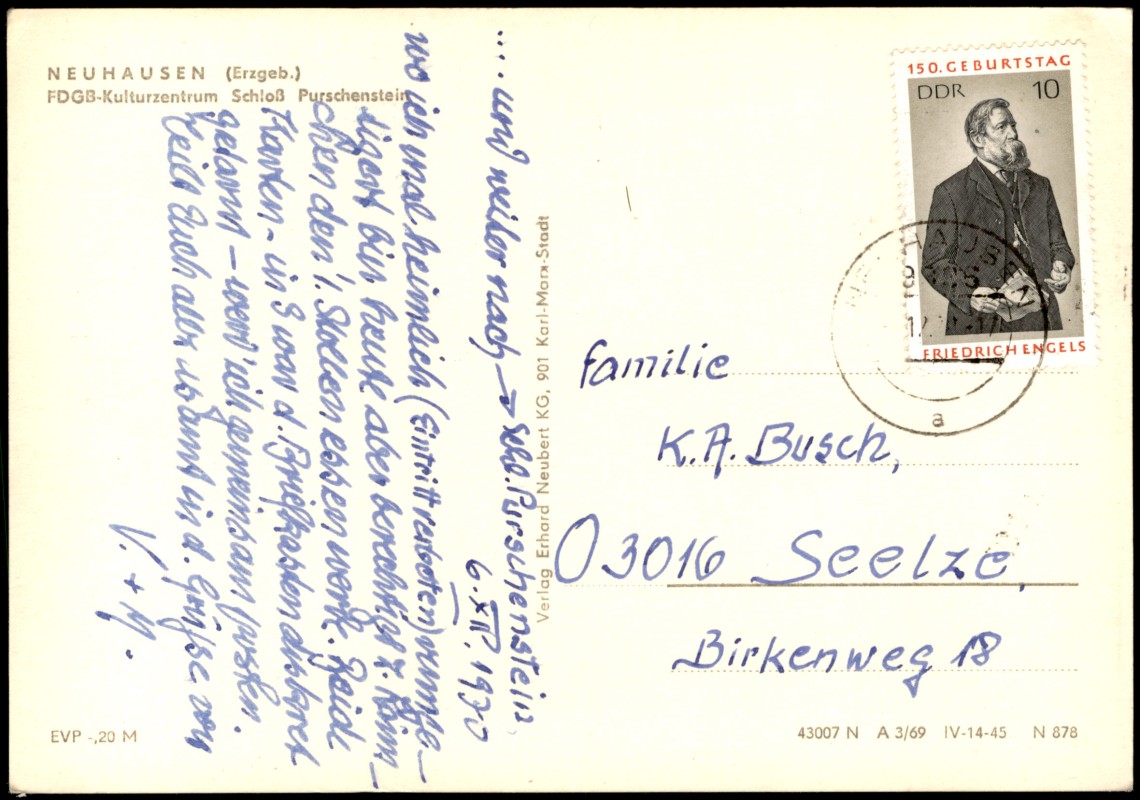 NEUHAUSEN (Erzgeb.)
FDGB-Kulturzentrum Schloß Purschenstein
.... und weiter nach → Schl. Purschenstein,
6. XII. 1970
wo ich mal heimlich (Eintritt verboten)
bin, heute aber berechtigt z.
chen den 1. Stollen essen werde. Beide
Karten - in S war d. Briefkasten
- werd' ich gemeinsam posten.
Seid Euch alle in d. Grüße von
V. + M.
Verlag Erhard Neubert KG, 901 Karl-Marx-Stadt
150. GEBURTSTAG
DDR 10
FRIEDRICH ENGELS
a
Familie
K.A. Busch,
O 3016 Seelze,
Birkenweg 18
EVP -,20 M
43007 N A 3/69 IV-14-45 N 878